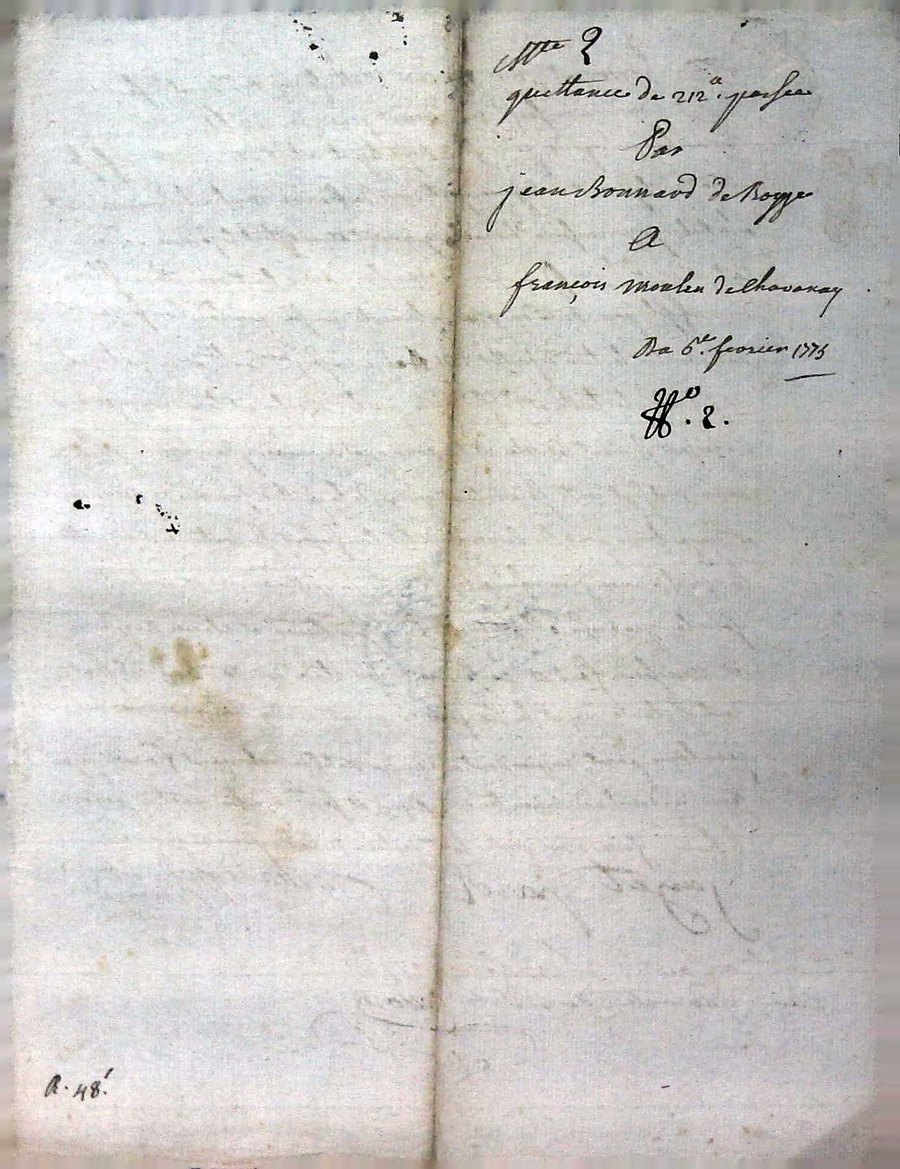 Cotte 2
quittance de 212ᵗᵗ. passée
Par
jean Bonnard de Boyge
A
françois moulin de Chavanay
Du 6ᵉ. fevrier 1775
Nº. 2.
A. 48.